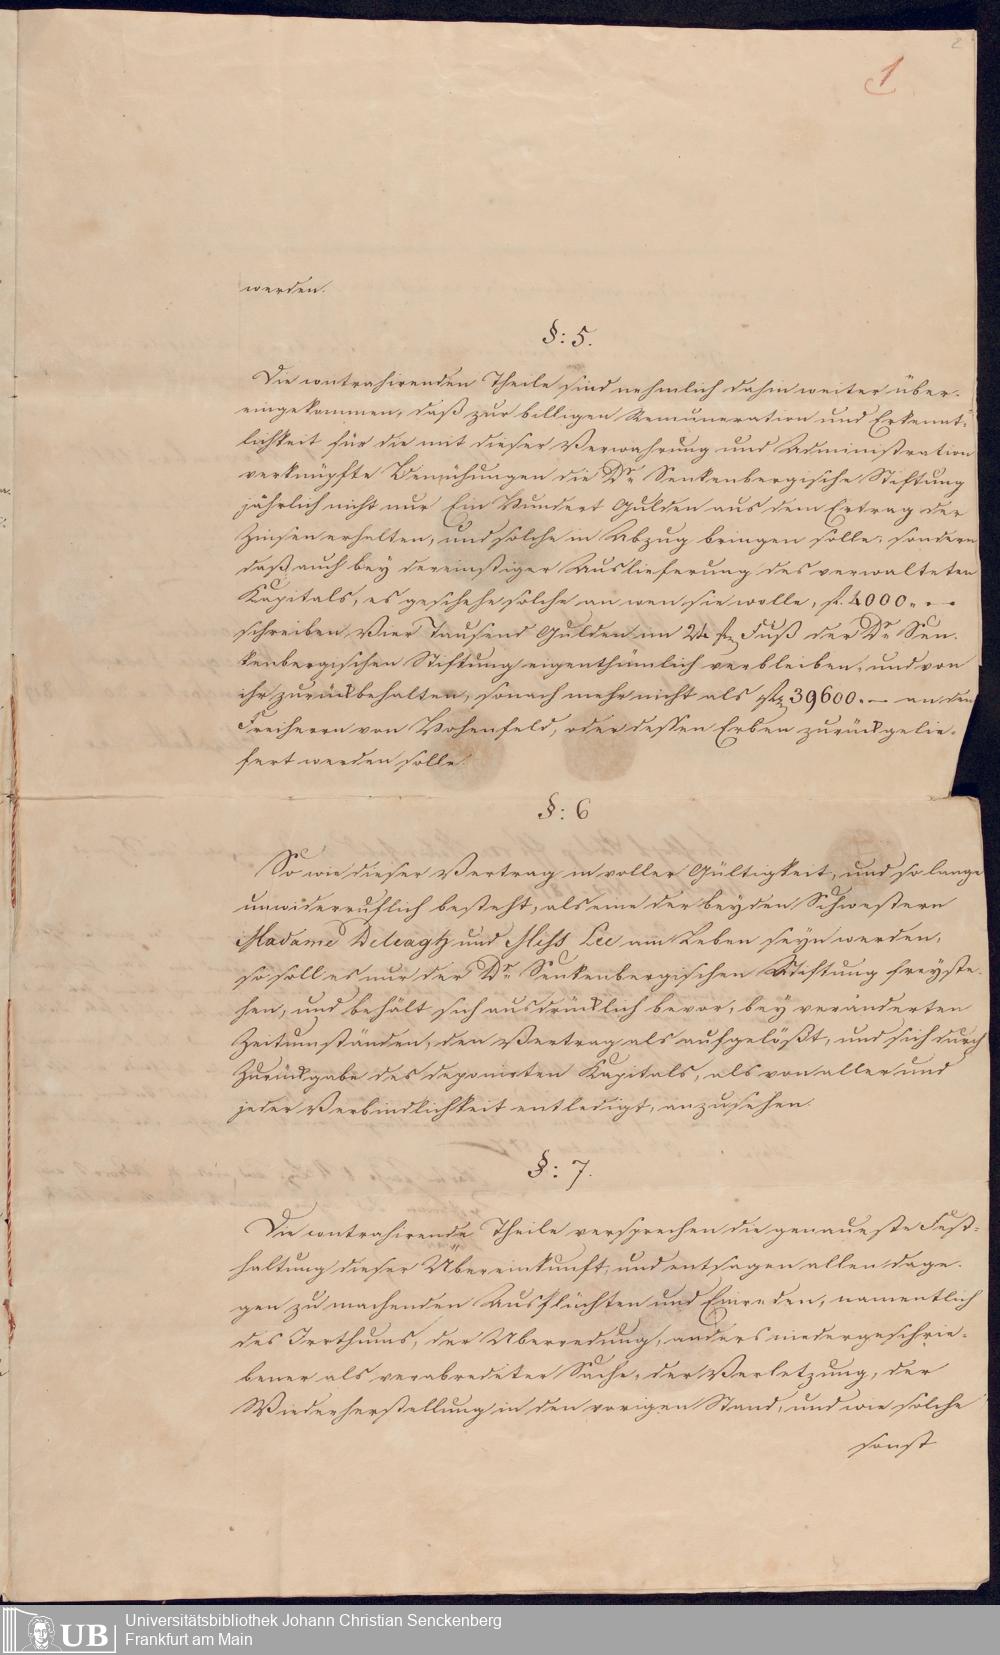 2
1
werden.
§: 5.
Die contrahirenden Theile sind nehmlich dahin weiter über-
eingekommen, daß zur billigen Remuneration und Erkennt-
lichkeit für die mit dieser Verwahrung und Administration
verknüpfte Bemühungen die Dr Senkenbergische Stiftung
jährlich nicht nur Ein Hundert Gulden aus dem Ertrag der
Zinsen erhalten, und solche in Abzug bringen solle, sondern
daß auch bey dereinstiger Auslieferung des verwalteten
Kapitals, es geschehe solche an wen sie wolle, f. 4000.. —
schreiben Vier Tausend Gulden im 24 f Fuß der Dr Sen-
kenbergischen Stiftung eigenthümlich verbleiben, und von
ihr zurückbehalten, sonach mehr nicht als 39600. — an den
Freiherrn von Hohenfeld, oder dessen Erben zurückgelie-
fert werden solle.
§: 6
So wie dieser Vertrag in voller Gültigkeit, und so lange
unwiderruflich besteht, als eine der beyden Schwestern
Madame und Miss Lee am Leben seyn werden,
so soll es nur der Dr Senkenbergischen Stiftung freyste-
hen, und behält sich ausdrücklich bevor, bey veränderten
Zeitumständen, den Vertrag als aufgelößt, und sich durch
Zurückgabe des deponirten Kapitals, als von aller und
jeder Verbindlichkeit entledigt, anzusehen.
§: 7.
Die contrahirende Theile versprechen die genaueste Fest-
haltung dieser Übereinkunft, und entsagen allen dage-
gen zu machenden Ausflüchten und Einreden, namentlich
des Irrthums, der Uberredung, anders niedergeschrie-
bener als verabredeter Sache, der Verletzung, der
Wiederherstellung in den vorigen Stand, und wie solche
sonst
UB
Universitätsbibliothek Johann Christian Senckenberg
Frankfurt am Main